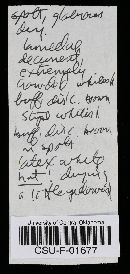 spots, glabrous
dry.
Lamellae
decurrent,
extremely
crowded whitish
buff disc. brown
stipe whitish
buff disc. brown
in spots
Latex white
not drying
University of Central Oklahoma
CSU-F-01677